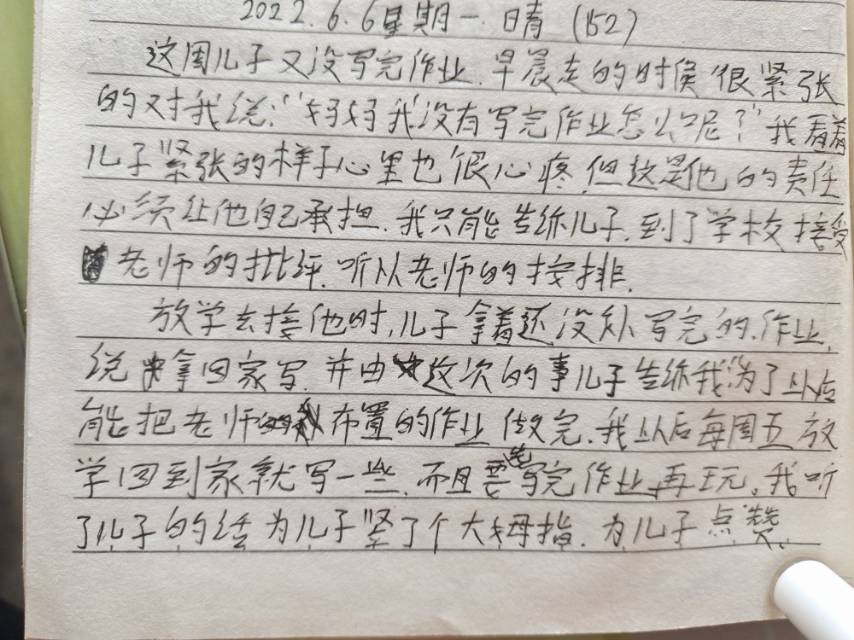 2022.6.6星期一.晴(152)
这周儿子又没写完作业.早晨走的时候很紧张
的对我说:“妈妈我没有写完作业怎么呢?”我看着
儿子紧张的样子心里也很心疼.但这是他的责任
必须让他自己承担.我只能告诉儿子.到了学校接受
老师的批评.听从老师的按排.
放学去接他时,儿子拿着还没补写完的.作业,
说拿回家写.并由这次的事儿子告诉我:为了以后
能把老师布置的作业做完.我以后每周五放
学回到家就写一些.而且要先写完作业,再玩。我听
了儿子的话为儿子竖了个大姆指.为儿子点赞.